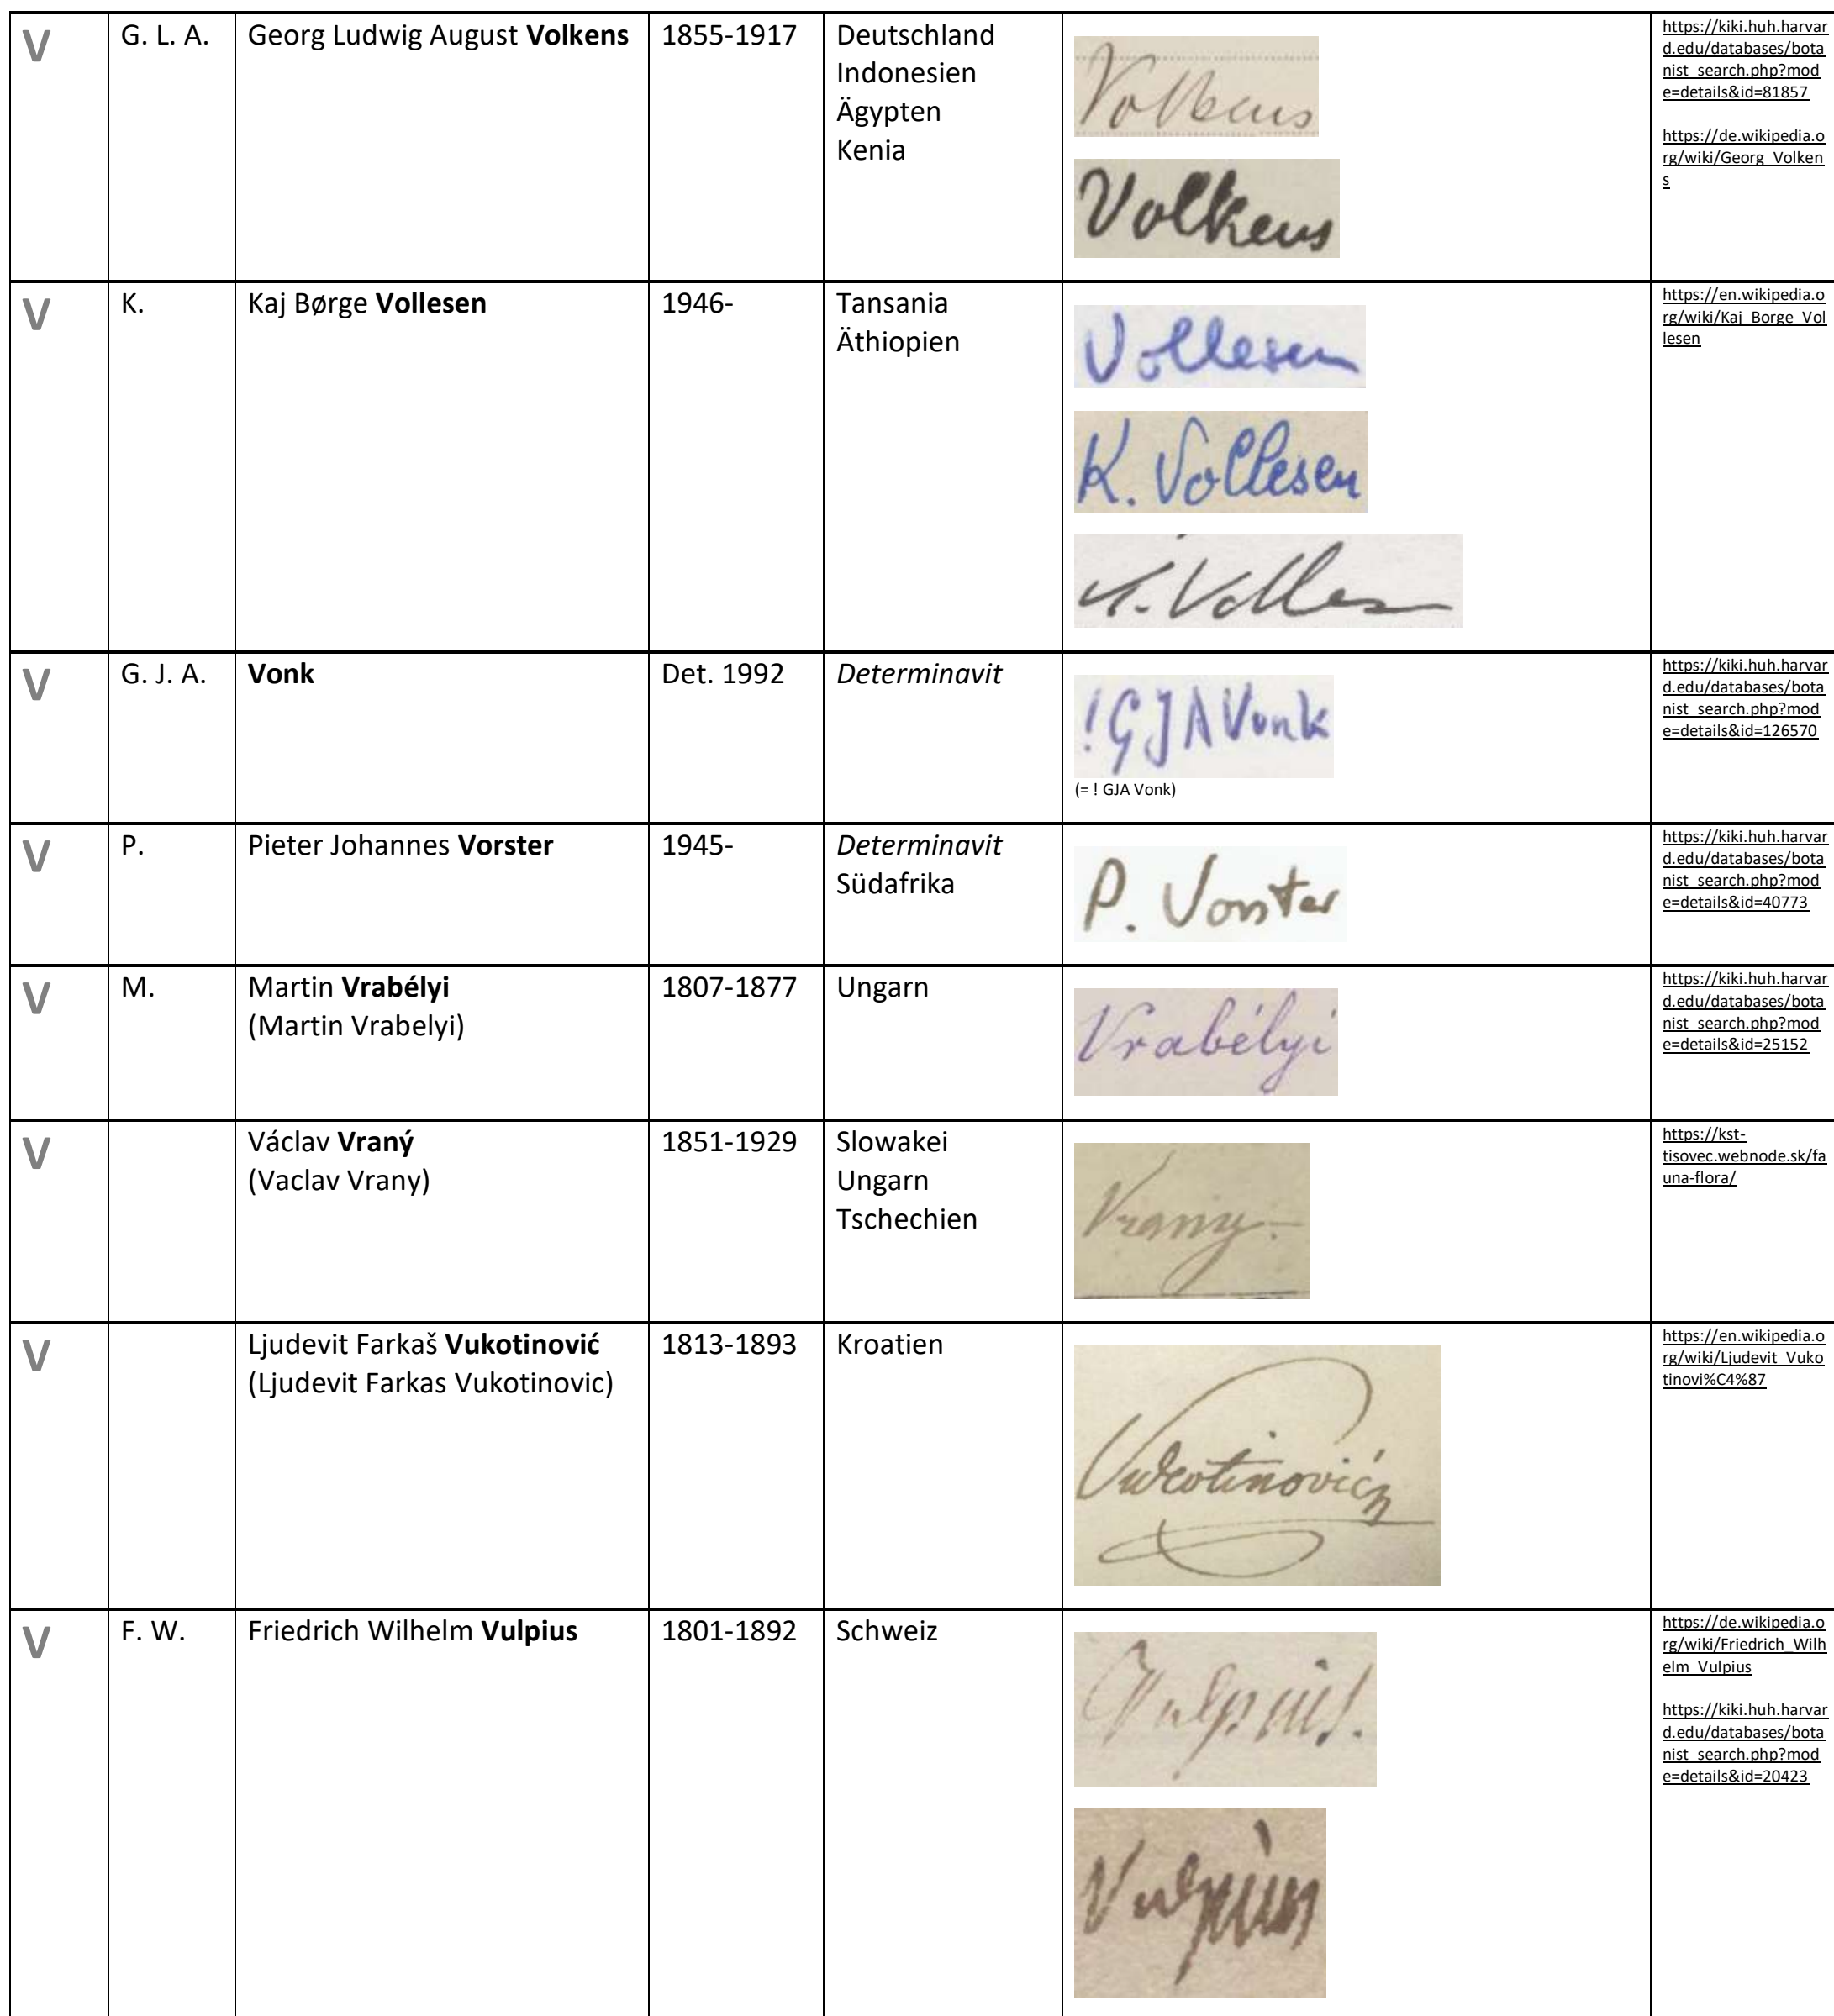 V
G. L. A.
Georg Ludwig August Volkens
1855-1917
Deutschland
Indonesien
Ägypten
Kenia
Volkens
Volkens
https://kiki.huh.harvar
d.edu/databases/bota
nist_search.php?mod
e=details&id=81857
https://de.wikipedia.o
rg/wiki/Georg_Volken
s
V
K.
Kaj Børge Vollesen
1946-
Tansania
Äthiopien
Vollesen
K. Vollesen
https://en.wikipedia.o
rg/wiki/Kaj_Borge_Vol
lesen
V
G. J. A.
Vonk
Det. 1992
Determinavit
! GJA Vonk
(= ! GJA Vonk)
https://kiki.huh.harvar
d.edu/databases/bota
nist_search.php?mod
e=details&id=126570
V
P.
Pieter Johannes Vorster
1945-
Determinavit
Südafrika
P. Vorster
https://kiki.huh.harvar
d.edu/databases/bota
nist_search.php?mod
e=details&id=40773
V
M.
Martin Vrabélyi
(Martin Vrabelyi)
1807-1877
Ungarn
Vrabélyi
https://kiki.huh.harvar
d.edu/databases/bota
nist_search.php?mod
e=details&id=25152
V
Václav Vraný
(Vaclav Vrany)
1851-1929
Slowakei
Ungarn
Tschechien
Vrany
https://kst-
tisovec.webnode.sk/fa
una-flora/
V
Ljudevit Farkaš Vukotinović
(Ljudevit Farkas Vukotinovic)
1813-1893
Kroatien
Vukotinović
https://en.wikipedia.o
rg/wiki/Ljudevit_Vuko
tinovi%C4%87
V
F. W.
Friedrich Wilhelm Vulpius
1801-1892
Schweiz
Vulpius.
Vulpius
https://de.wikipedia.o
rg/wiki/Friedrich_Wilh
elm_Vulpius
https://kiki.huh.harvar
d.edu/databases/bota
nist_search.php?mod
e=details&id=20423